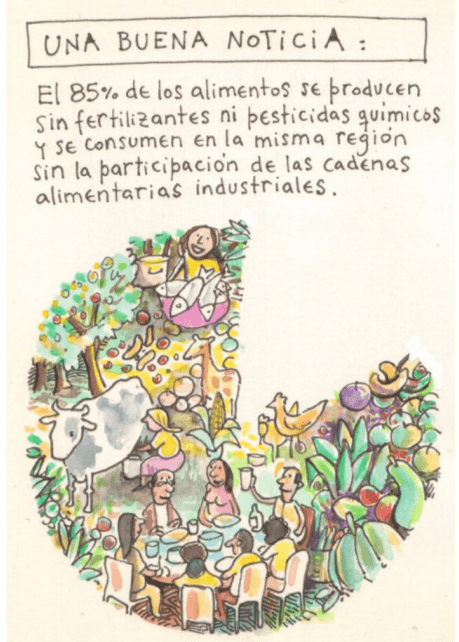 UNA BUENA NOTICIA:
El 85% de los alimentos se producen
sin fertilizantes ni pesticidas químicos
y se consumen en la misma región
sin la participación de las cadenas
alimentarias industriales.